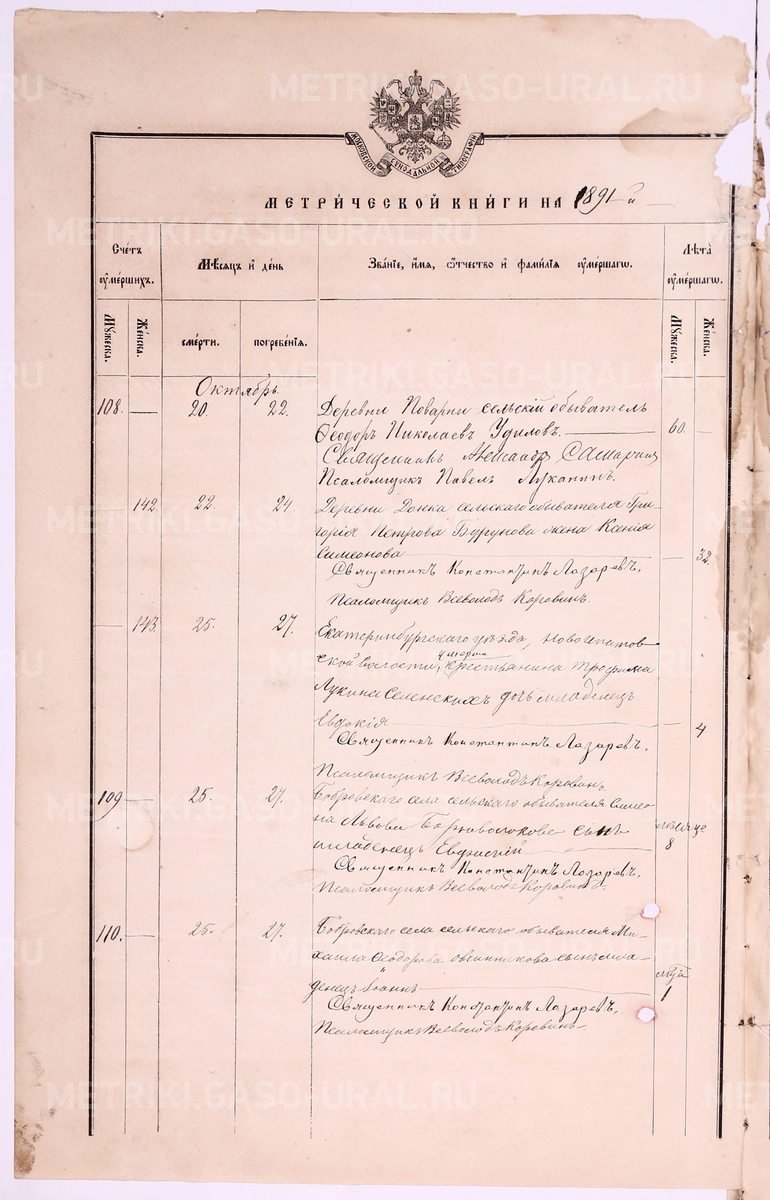 METRIKI.GASO-URAL.RU
МОСКОВСКОЙ СѴНОДАЛЬНОЙ ТИПОГРАФІИ
МЕТРИ́ЧЕСКОЙ КНИ́ГИ НА 1891-й
Сче́тъ ᲂу҆ме́ршихъ.
Мѣ́сяцъ и҆ де́нь
Зва́нїе, и҆́мя, ѻ҆́тчество и҆ фами́лїя ᲂу҆ме́ршагѡ.
Лѣ́та ᲂу҆ме́ршагѡ.
Мꙋ́жеска.
Же́нска.
сме́рти.
погребе́нїя.
Мꙋ́жеска.
Же́нска.
Октябрь.
108. — 20. 22. Деревни Поварни сельскій обыватель
Ѳеодоръ Николаевъ Удиловъ. — 60. —
Священникъ Александр Самарцев
Псаломщикъ Павелъ Луканинъ.
— 142. 22. 24. Деревни Донка сельскаго обывателя Гри-
горія Петрова Бурунова жена Ксенія
Симеонова — — 32.
Священникъ Константинъ Лазаревъ,
Псаломщикъ Всеволодъ Коровинъ.
— 143. 25. 27. Екатеринбургскаго уѣзда, Новоипатов-
ской волости, умерша крестьянина Трофима
Лукина Селенскихъ дочь младенецъ
Евдокія — — 4
Священникъ Константинъ Лазаревъ,
Псаломщикъ Всеволодъ Коровинъ.
109 — 25. 27. Бобровскаго села сельскаго обывателя Симео-
на Львова сынъ месяце
младенецъ 8
Священникъ Константинъ Лазаревъ,
Псаломщикъ Всеволодъ Коровинъ.
110. — 25. 27. Бобровскаго села сельскаго обывателя Ми-
хаила Ѳеодорова Овчинникова сынъ мла-
денецъ Іоаннъ — 1
Священникъ Константинъ Лазаревъ,
Псаломщикъ Всеволодъ Коровинъ